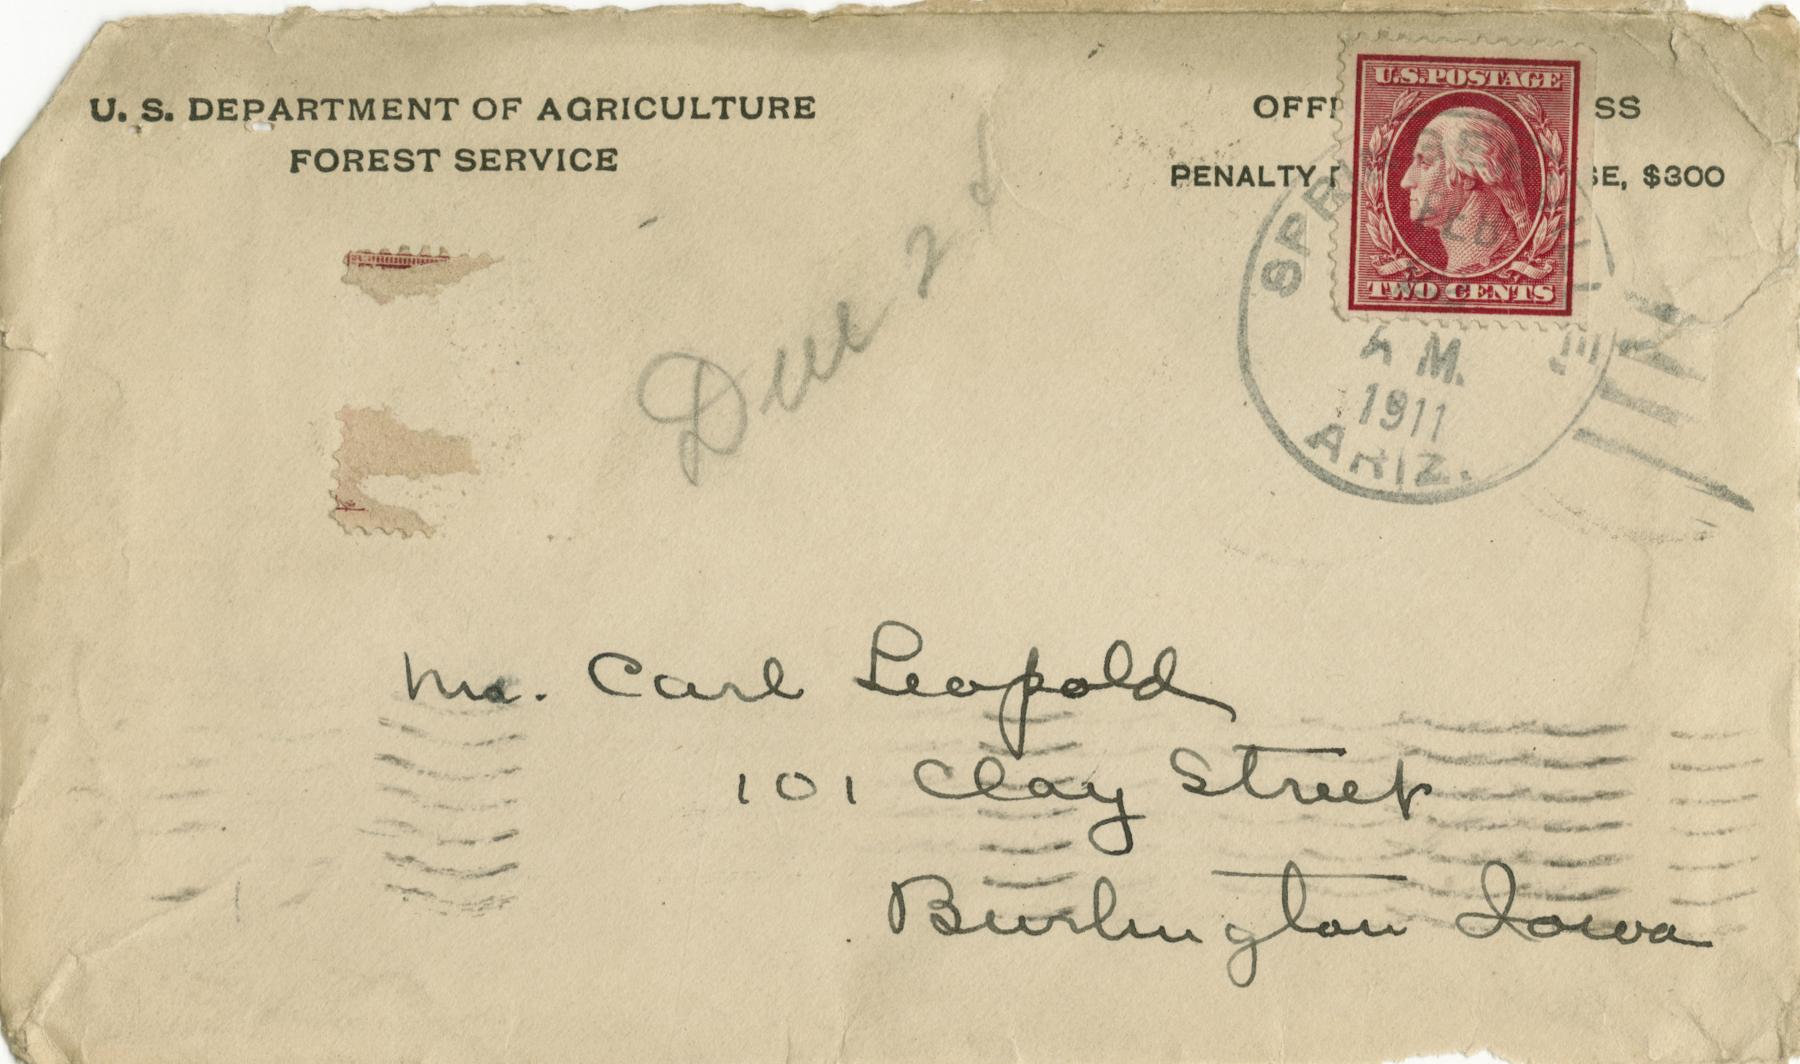 U. S. DEPARTMENT OF AGRICULTURE
FOREST SERVICE
OFFI SS
PENALTY SE, $300
U.S. POSTAGE
TWO CENTS
FEB
A M.
1911
ARIZ.
Due 2 ¢
Mr. Carl Leopold
101 Clay Street
Burlington Iowa